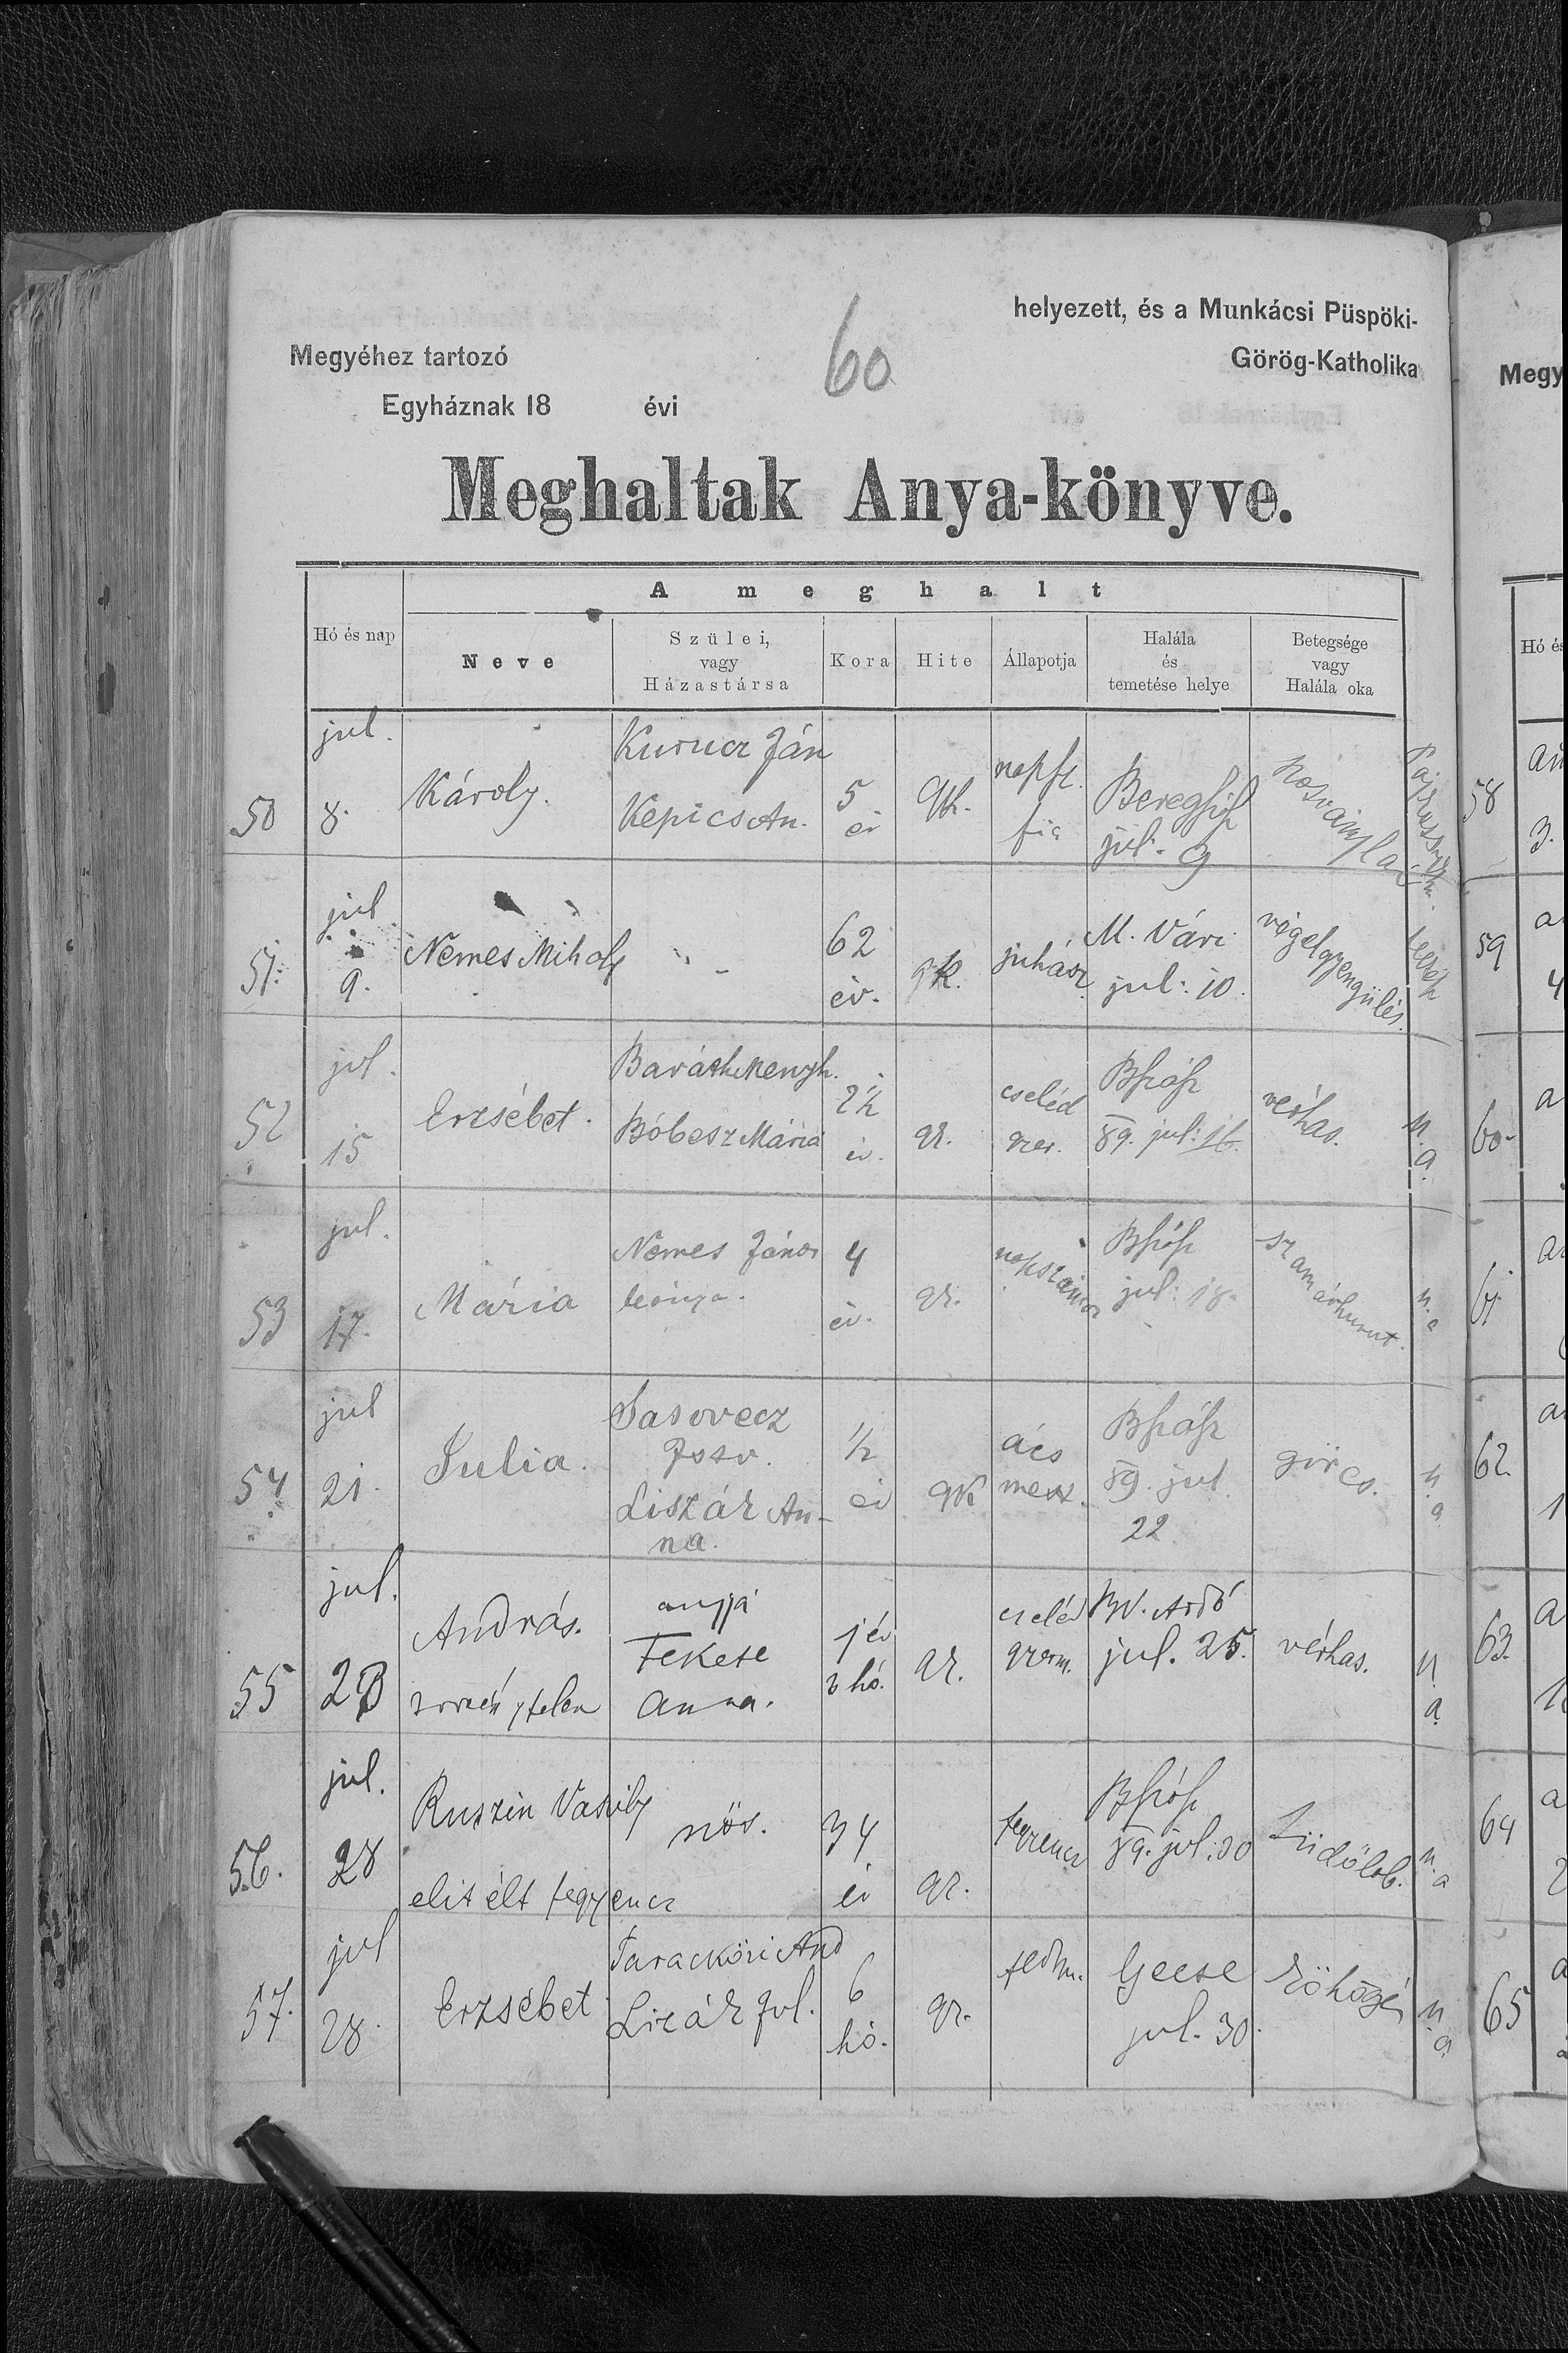 helyezett, és a Munkácsi Püspöki-
Megyéhez tartozó 60 Görög-Katholika
Egyháznak 18 évi
Meghaltak Anya-könyve.
A meghalt
Hó és nap
Neve
Szülei,
vagy
Házastársa
Kora
Hite
Állapotja
Halála
és
temetése helye
Betegsége
vagy
Halála oka
50
jul.
8.
Károly.
Kurucz Ján
Kepics An.
5
év
gk.
napsz.
fia
jul. 9
51.
jul
9.
Nemes Mihaly
62
év.
gk.
juhász
M. Vári
jul. 10.
végelgyengülés.
52
jul.
15
Erzsébet.
Baráth Menyh.
Bóbesz Mária
2½
év.
gk.
cseléd
89. jul. 16.
vérhas.
n.
a.
53
jul.
17.
Mária
Nemes János
leánya.
4
év.
gk.
napszámos
jul. 18.
szamárhurut.
n. a
54.
jul
21.
Julia.
Sasovecz
Liszák An-
na.
½
év
gk
ács
mest.
89. jul.
22
görcs.
n.
a
55
jul.
23
András.
törvénytelen
anyja
Fekete
Anna.
1 év
2 hó.
gk.
cseléd
BV. Ardó
jul. 25.
vérhas.
n
a.
56.
jul.
28
Ruszin Vaszily
elitélt fegyencz
nös.
34
év
gk.
fegyencz
89. jul. 30
Tüdőlob.
n. a
57.
jul
28.
Erzsébet
Taracköri And
Lizák Jul.
6
hó.
gk.
földm.
Gecse
jul. 30.
Köhögés
n.
a.
Megy
Hó és
58
3.
59
4
60.
61.
62.
1
63.
64
2
65